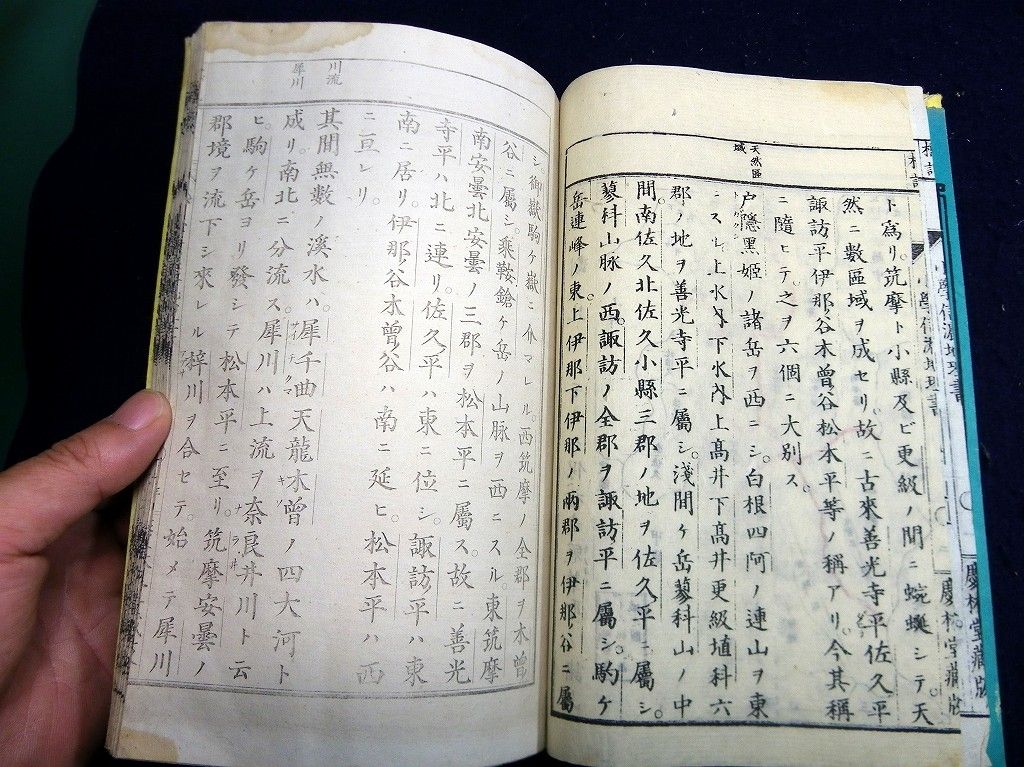 天然區
域
ト爲リ。筑摩ト小縣及ビ更級ノ間ニ蜿蜒シテ。天
然ニ數區域ヲ成セリ。故ニ古來善光寺平佐久平
諏訪平伊那谷木曾谷松本平等ノ稱アリ。今其稱
ニ隨ヒテ。之ヲ六個ニ大別ス。
戸隱黑姬ノ諸岳ヲ西ニシ。白根四阿ノ連山ヲ東
ニスル。上水內下水內上高井下高井更級埴科六
郡ノ地ヲ善光寺平ニ屬シ。淺間ケ岳蓼科山ノ中
間。南佐久北佐久小縣三郡ノ地ヲ佐久平ニ屬シ。
蓼科山脉ノ西。諏訪ノ全郡ヲ諏訪平ニ屬シ。駒ケ
岳連峰ノ東。上伊那下伊那ノ兩郡ヲ伊那谷ニ屬
シ。御嶽駒ケ嶽ニ介マレル。西筑摩ノ全郡ヲ木曾
谷ニ屬シ。乘鞍鎗ケ岳ノ山脉ヲ西ニスル。東筑摩
南安曇北安曇ノ三郡ヲ松本平ニ屬ス。故ニ善光
寺平ハ北ニ連リ。佐久平ハ東ニ位シ。諏訪平ハ東
南ニ居リ。伊那谷木曾谷ハ南ニ延ヒ。松本平ハ西
ニ亘レリ。
川流
犀川
其間無數ノ溪水ハ。犀千曲天龍木曾ノ四大河ト
成リ。南北ニ分流ス。犀川ハ上流ヲ奈良井川ト云
ヒ。駒ケ岳ヨリ發シテ松本平ニ至リ。筑摩安曇ノ
郡境ヲ流下シ來レル梓川ヲ合セテ。始メテ犀川
慶林堂藏版
慶林堂藏版